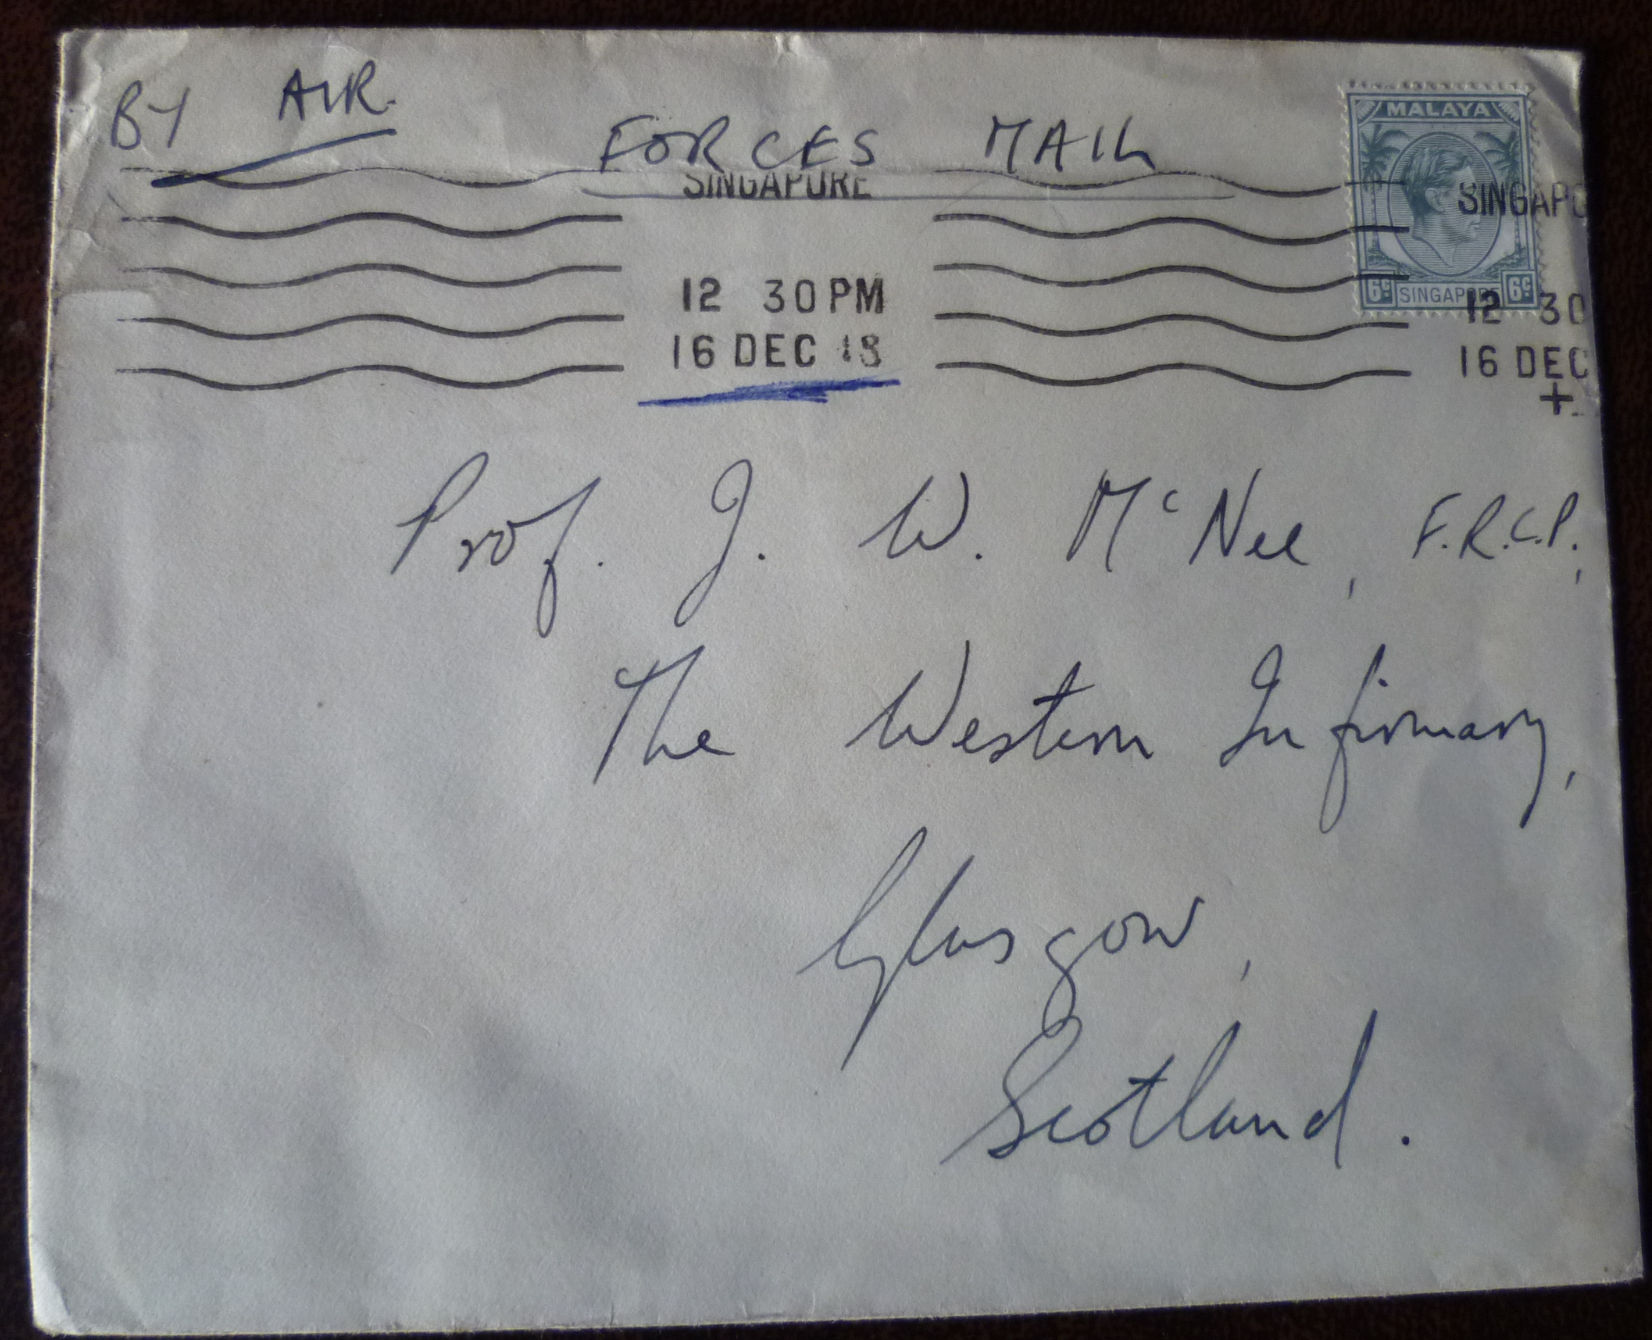 BY AIR.
FORCES MAIL
MALAYA
SINGAPORE
SINGAPO
6c SINGAPORE 6c
12 30 PM
12 30
16 DEC 48
16 DEC
Prof. J. W. McNee, F.R.C.P.,
The Western Infirmary,
Glasgow,
Scotland.